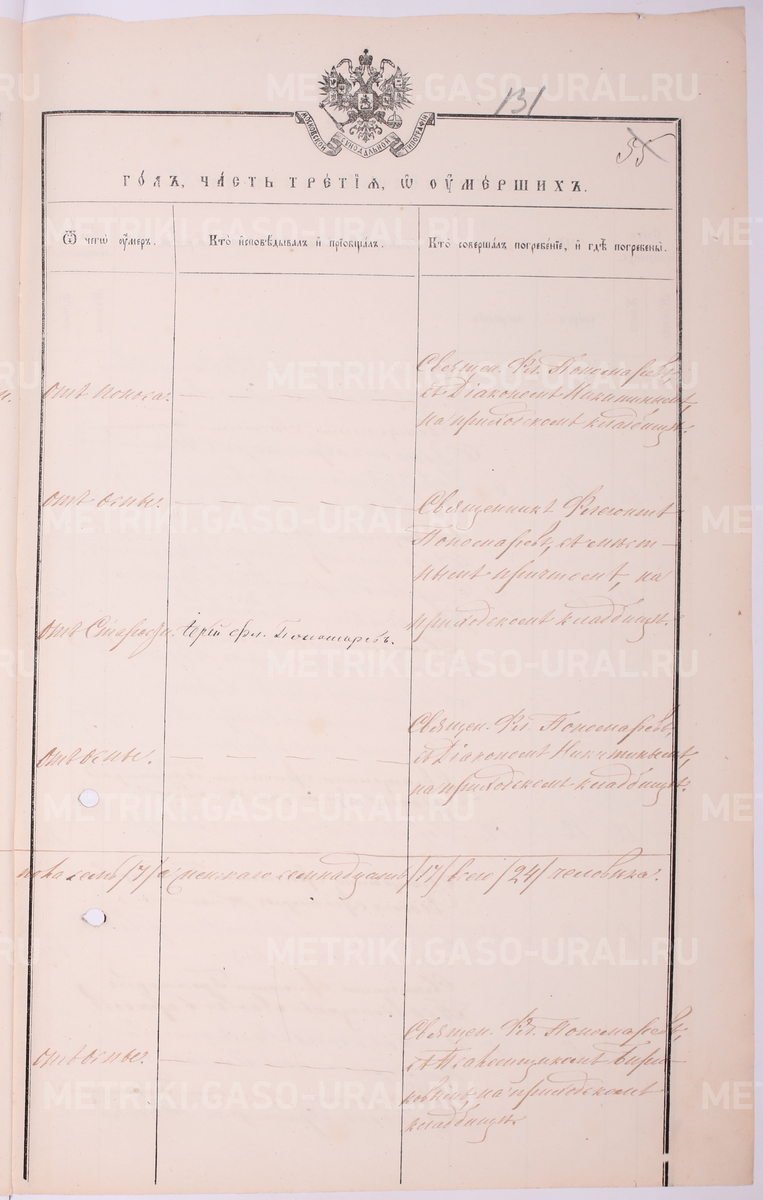 131
55
МОСКОВСКОЙ СѴНОДАЛЬНОЙ ТИПОГРАФІИ
ГО́ДЪ, ЧА́СТЬ ТРЕ́ТІЯ, Ѡ҆ ОУ҆МЕ́РШИХЪ.
Ѿ чегѡ̀ оу҆́меръ.
Кто̀ и҆сповѣ́дывалъ и҆ прїѡбща́лъ.
Кто̀ соверша́лъ погребе́нїе, и҆ гдѣ̀ погребены̀.
отъ поноса.
Священ. Фл. Пономаревъ,
съ Діакономъ Никитинымъ,
на приходскомъ кладбищѣ.
отъ оспы.
Священникъ Флегонтъ
Пономаревъ, съ мѣст-
нымъ причтомъ, на
приходскомъ кладбищѣ.
отъ Старости.
Іерей Фл. Пономаревъ.
отъ оспы.
Священ. Фл. Пономаревъ,
съ Діакономъ Никитинымъ,
на приходскомъ кладбищѣ.
пола семь /7/ а женскаго семнадцать /17/ всего /24/ человѣка.
отъ оспы.
Священ. Фл. Пономаревъ,
съ Псаломщикомъ Бирю-
ковымъ, на приходскомъ
кладбищѣ.
METRIKI.GASO-URAL.RU